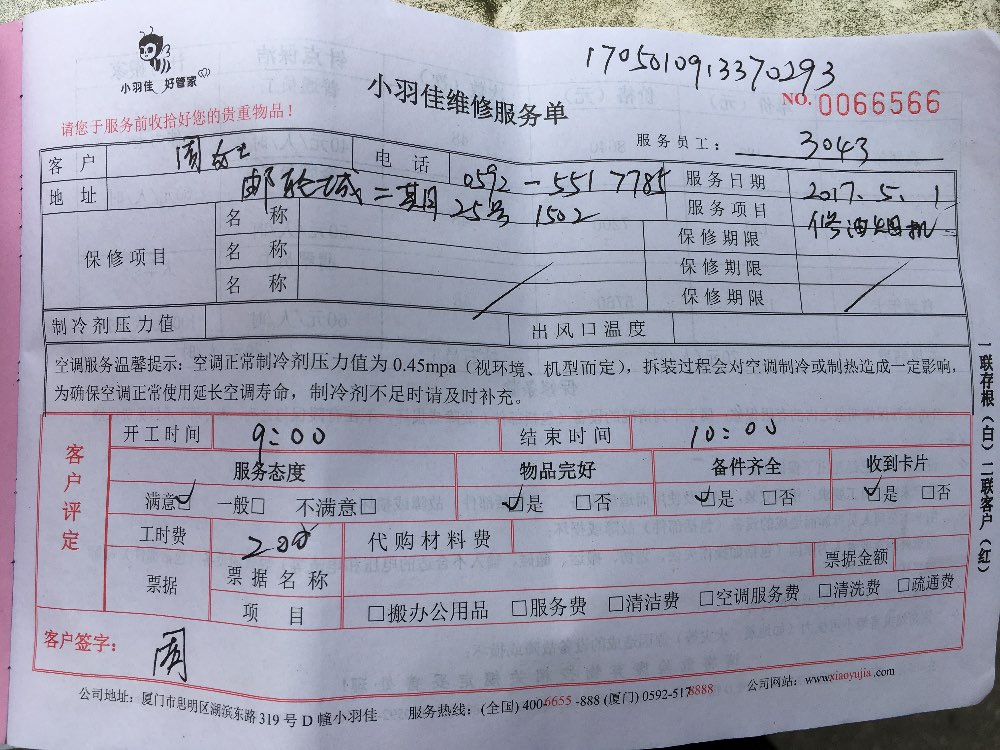 小羽佳 好管家
1705010913370293
小羽佳维修服务单
NO. 0066566
请您于服务前收拾好您的贵重物品！
服务员工： 3043
客户 周女士 电话 0592-5517785 服务日期 2017.5.1
地址 邮轮城二期25号1502 服务项目 修油烟机
保修项目 名称 保修期限
名称 保修期限
名称 保修期限
制冷剂压力值 出风口温度
空调服务温馨提示：空调正常制冷剂压力值为0.45mpa（视环境、机型而定），拆装过程会对空调制冷或制热造成一定影响，
为确保空调正常使用延长空调寿命，制冷剂不足时请及时补充。
客户评定
开工时间 9:00 结束时间 10:00
服务态度 物品完好 备件齐全 收到卡片
满意☑ 一般□ 不满意□ ☑是 □否 ☑是 □否 ☑是 □否
工时费 200 代购材料费
票据 票据名称 票据金额
项目 □搬办公用品 □服务费 □清洁费 □空调服务费 □清洗费 □疏通费
客户签字： 周
公司地址：厦门市思明区湖滨东路319号D幢小羽佳 服务热线：(全国) 400-6655-888 (厦门) 0592-5178888 公司网站：www.xiaoyujia.com
一联存根（白）二联客户（红）